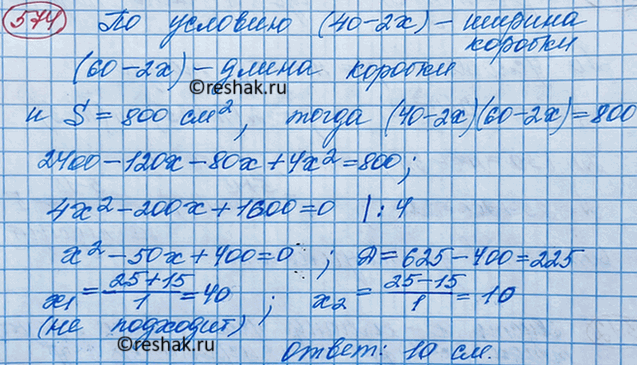 574 По условию (40-2x) - ширина
коробки
(60-2x) - длина коробки
©reshak.ru
и S = 800 см², тогда (40-2x)(60-2x)=800
2400-120x-80x+4x²=800;
4x²-200x+1600=0 |:4
x²-50x+400=0; D=625-400=225
x₁ = (25+15)/1 = 40; x₂ = (25-15)/1 = 10
(не подходит)
©reshak.ru
ответ: 10 см.